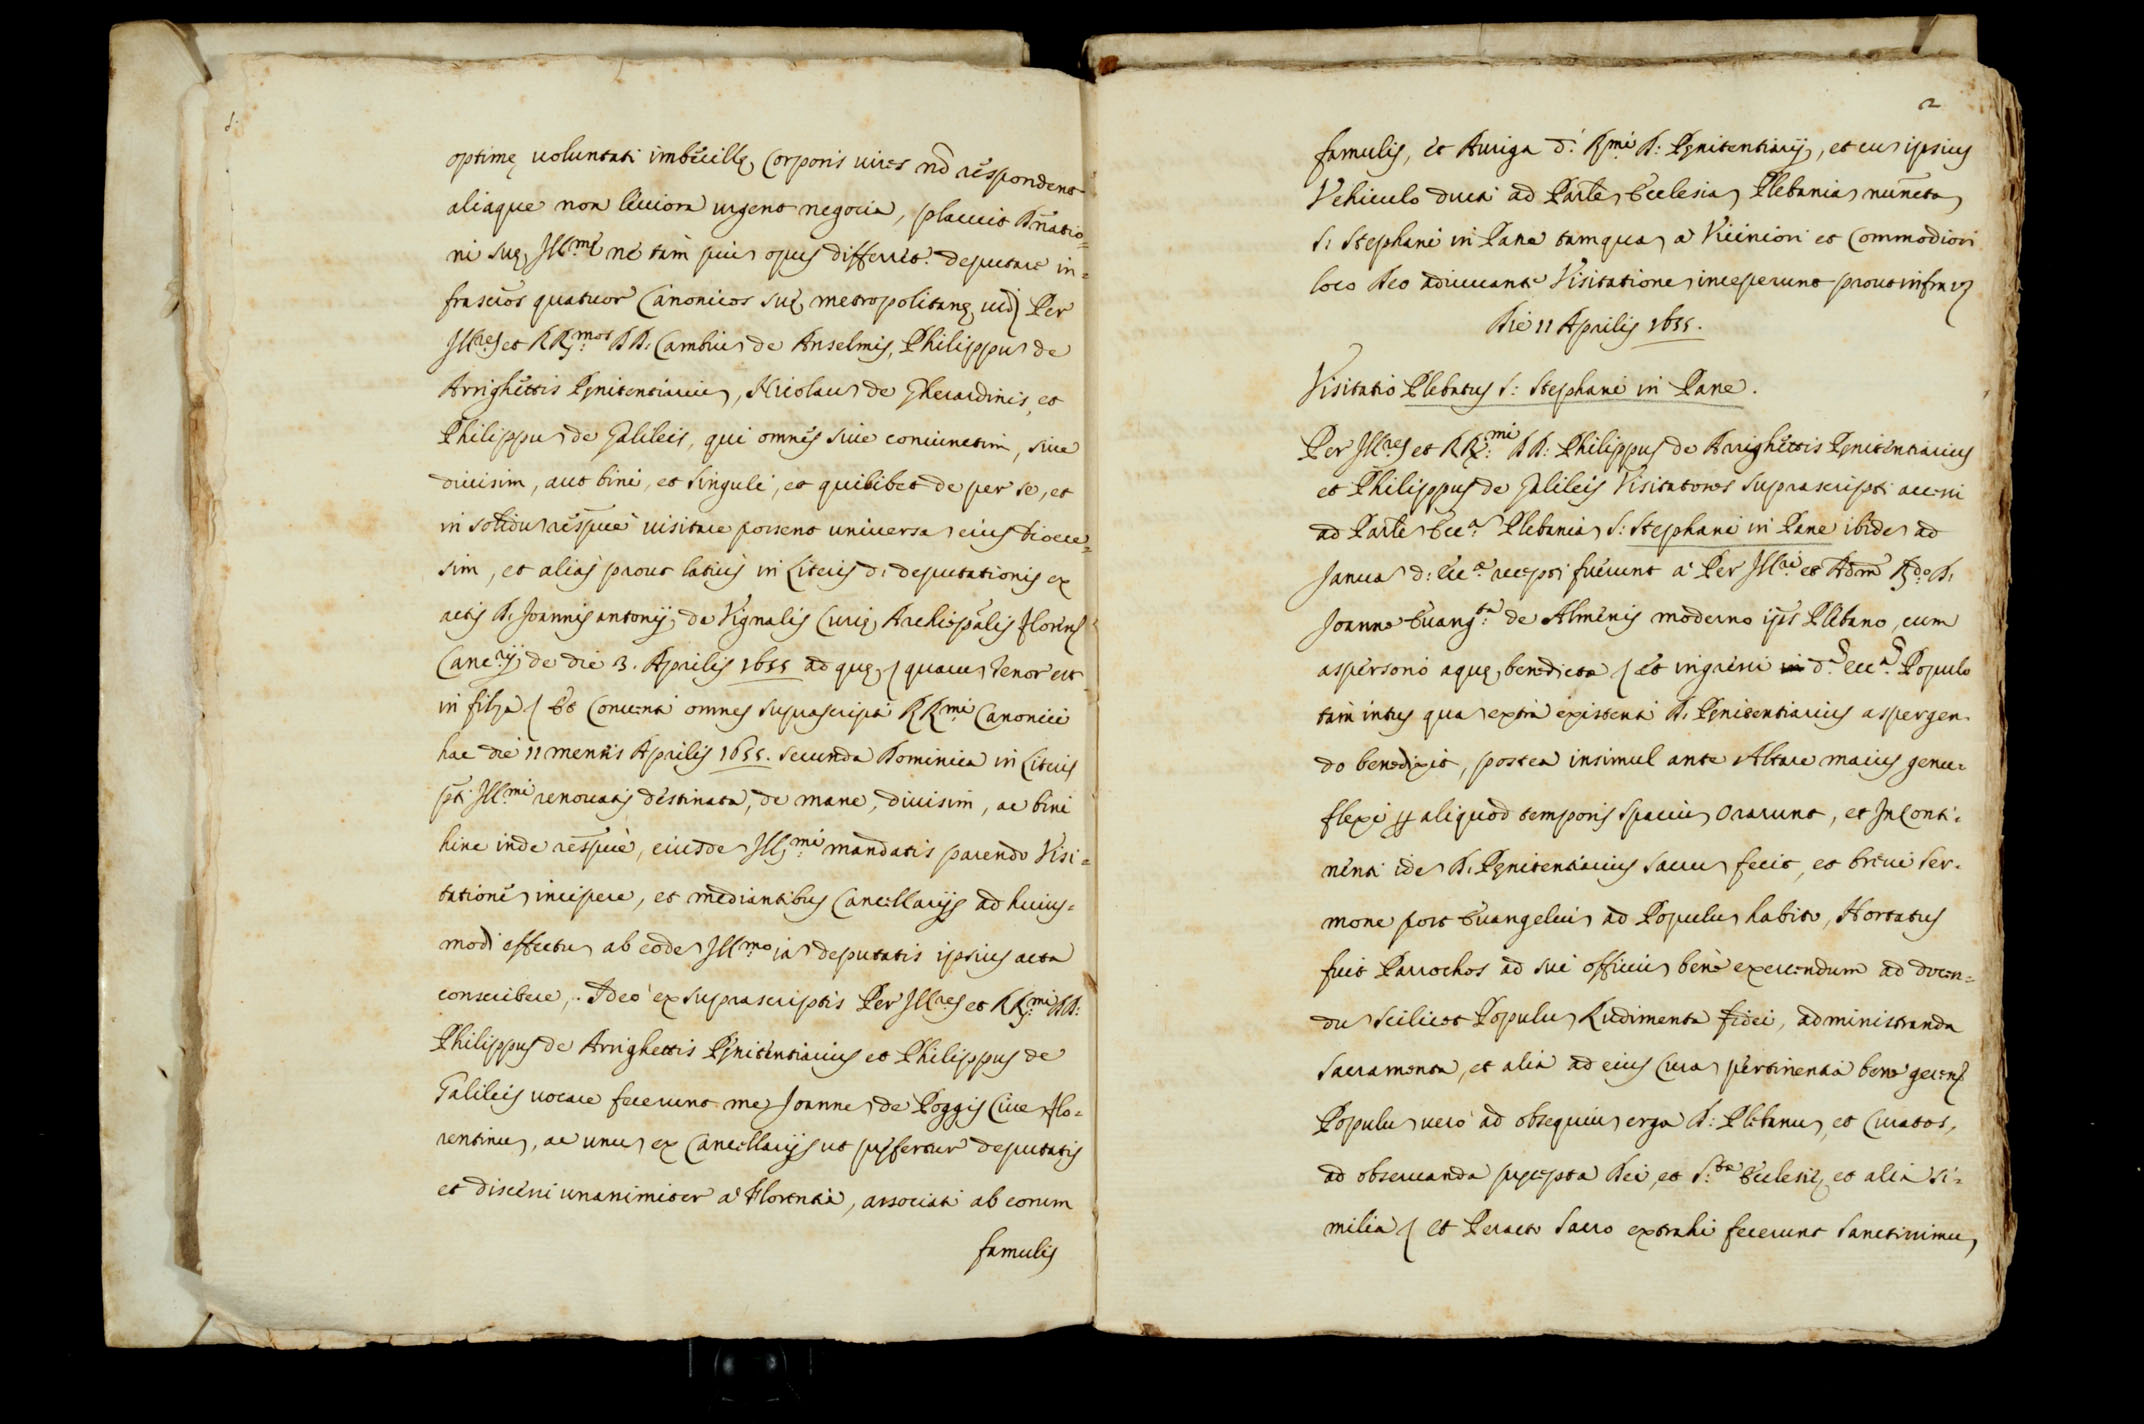 optimę uoluntati imbecillę Corporis uires nō respondent
aliaque non leuiora urgent negocia, placuit Dn̄atio=
ni suę Ill.me ne tam piū opus differret deputare in=
frascr̄os quatuor Canonicos suę metropolitanę uid; Per
Ill.res et RR.mos DD: Cambiū de Anselmis, Philippū de
Arrighettis Pęnitentiariū, Nicolaū de Gherardinis, et
Philippū de Galileis, qui omnes siue coniunctim, siue
diuisim, aut bini, et singuli, et quilibet de per se, et
in solidū respiue uisitare possent uniuersā eius Dioece=
sim, et alias prout latius in Literis d: deputationis ex
actis D: Joannis antonij de Vignalis Curię Archiepālis Floren;
Canc.rij de die 3. Aprilis 1655 ad quę; quarū tenor est
in filza; Et Conuenti omnes suprascripti RR.mi Canonici
hac die 11 mensis Aprilis 1655. secunda Dominica in Literis
pti Ill.mi renouatis destinata, de mane, diuisim, ac bini
hinc inde respiuè, eiusdē Ill.mi mandatis parendo Visi=
tationē incipere, et mediantibus Cancellarijs ad huius=
modi effectū ab eodē Ill.mo iā deputatis ipsius acta
conscribere, Ideo ex suprascriptis Per Ill.res et RR.mi DD:
Philippus de Arrighettis Pęnitentiarius et Philippus de
Galileis uocare fecerunt me Joannē de Poggis Ciuē Flo=
rentinū, ac unū ex Cancellarijs ut pręfertur deputatis
et discessi unanimiter à Florentia, associati ab eorum
famulis
2
famulis, et Auriga d: R.mi D: Pęnitentiarij, et cū ipsius
Vehiculo ducti ad Parlē Ecclesiā Plebaniā nuncta
S: Stephani in Pane tamquā à Viciniori et Commodiori
loco Deo adiuuante Visitationē inceperunt prout infra uz
Die 11 Aprilis 1655.
Visitatio Plebatus S: Stephani in Pane.
Per Ill.res et RR.mi DD: Philippus de Arrighettis Pęnitentiarius
et Philippus de Galileis Visitatores suprascripti accessi
ad Parlē Ecc.ā Plebaniā S: Stephani in Pane ibidē ad
Januā d: ecc.ę recepti fuerunt à Per Ill.re et Adm̄ R.do D:
Joanne Euang.ta de Almenis moderno ips Plebano, cum
aspersorio aquę benedictę; Et ingressi d.ā ecc.ā Populo
tam intus quā extra existenti D: Pęnitentiarius aspergen=
do benedixit, postea insimul ante Altare maius genu=
flexi p aliquod temporis spaciū orarunt, et Inconti=
nenti idē D: Pęnitentiarius sacrū fecit, et breui ser=
mone post Euangeliū ad Populū habito, Hortatus
fuit Parrochos ad sui officiū benè exercendum ad docen=
dū scilicet Populū Rudimenta fidei, administranda
sacramenta, et alia ad eius Curā pertinentia bene gerens;
Populū uerò ad obsequiū erga D: Plebanū, et Curatos,
ad obseruanda pręcepta Dei, et S.tę Ecclesię, et alia si=
milia; Et Peracto sacro extrahi fecerunt Sanctissimū